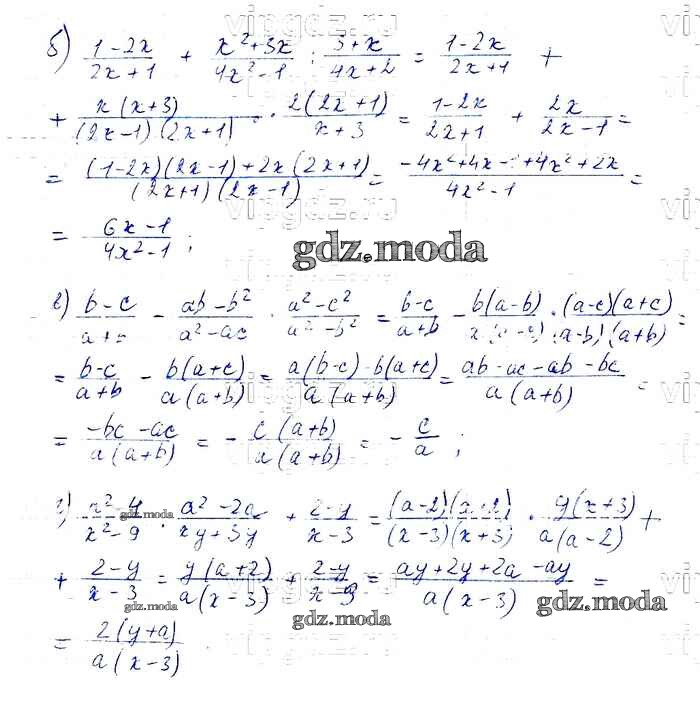 б) (1-2x)/(2x+1) + (x²+3x)/(4x²-1) : (3+x)/(4x+2) = (1-2x)/(2x+1) +
+ x(x+3)/((2x-1)(2x+1)) · 2(2x+1)/(x+3) = (1-2x)/(2x+1) + 2x/(2x-1) =
= ((1-2x)(2x-1)+2x(2x+1))/((2x+1)(2x-1)) = (-4x²+4x-1+4x²+2x)/(4x²-1) =
= (6x-1)/(4x²-1) ;
gdz.moda
в) (b-c)/(a+b) - (ab-b²)/(a²-ac) · (a²-c²)/(a²-b²) = (b-c)/(a+b) - b(a-b)/ · (a-c)(a+c)/((a-b)(a+b)) =
= (b-c)/(a+b) - b(a+c)/(a(a+b)) = (a(b-c)-b(a+c))/(a(a+b)) = (ab-ac-ab-bc)/(a(a+b)) =
= (-bc-ac)/(a(a+b)) = - c(a+b)/(a(a+b)) = - c/a ;
г) /(x²-9) : (a²-2a)/(xy+3y) + (2-y)/(x-3) = (a-2)(a+2)/((x-3)(x+3)) · y(x+3)/(a(a-2)) +
gdz.moda
+ (2-y)/(x-3) = y(a+2)/(a(x-3)) + (2-y)/(x-3) = (ay+2y+2a-ay)/(a(x-3)) =
gdz.moda
gdz.moda
gdz.moda
= 2(y+a)/(a(x-3))
vipgdz.ru